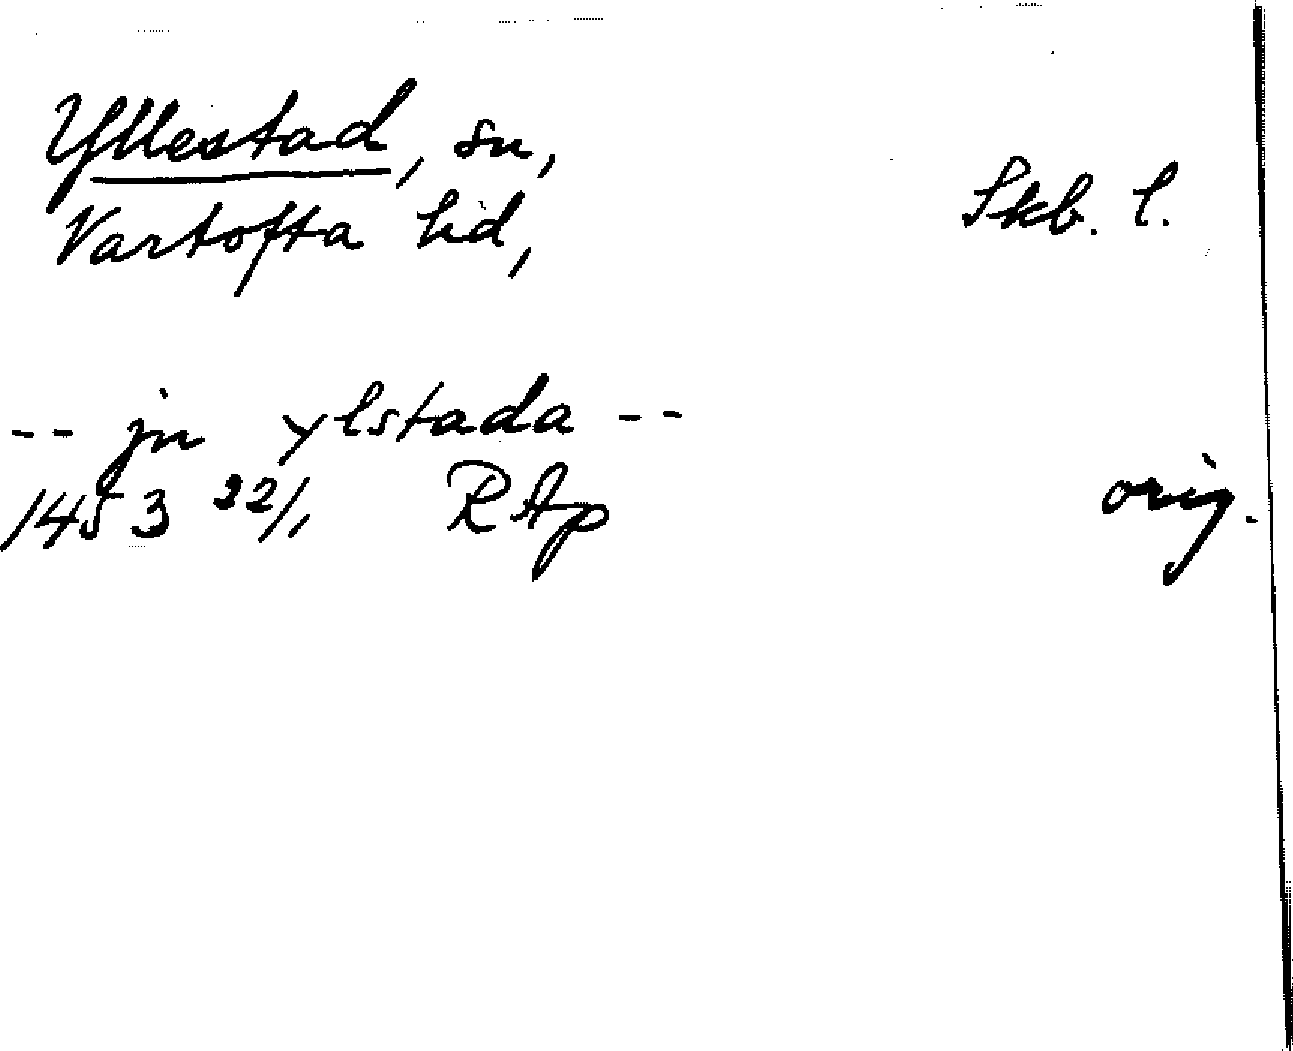 Yllestad, sn,
Vartofta hd,
Skb. l.
-- jn ylstada --
1453 22/1 RAp
orig.